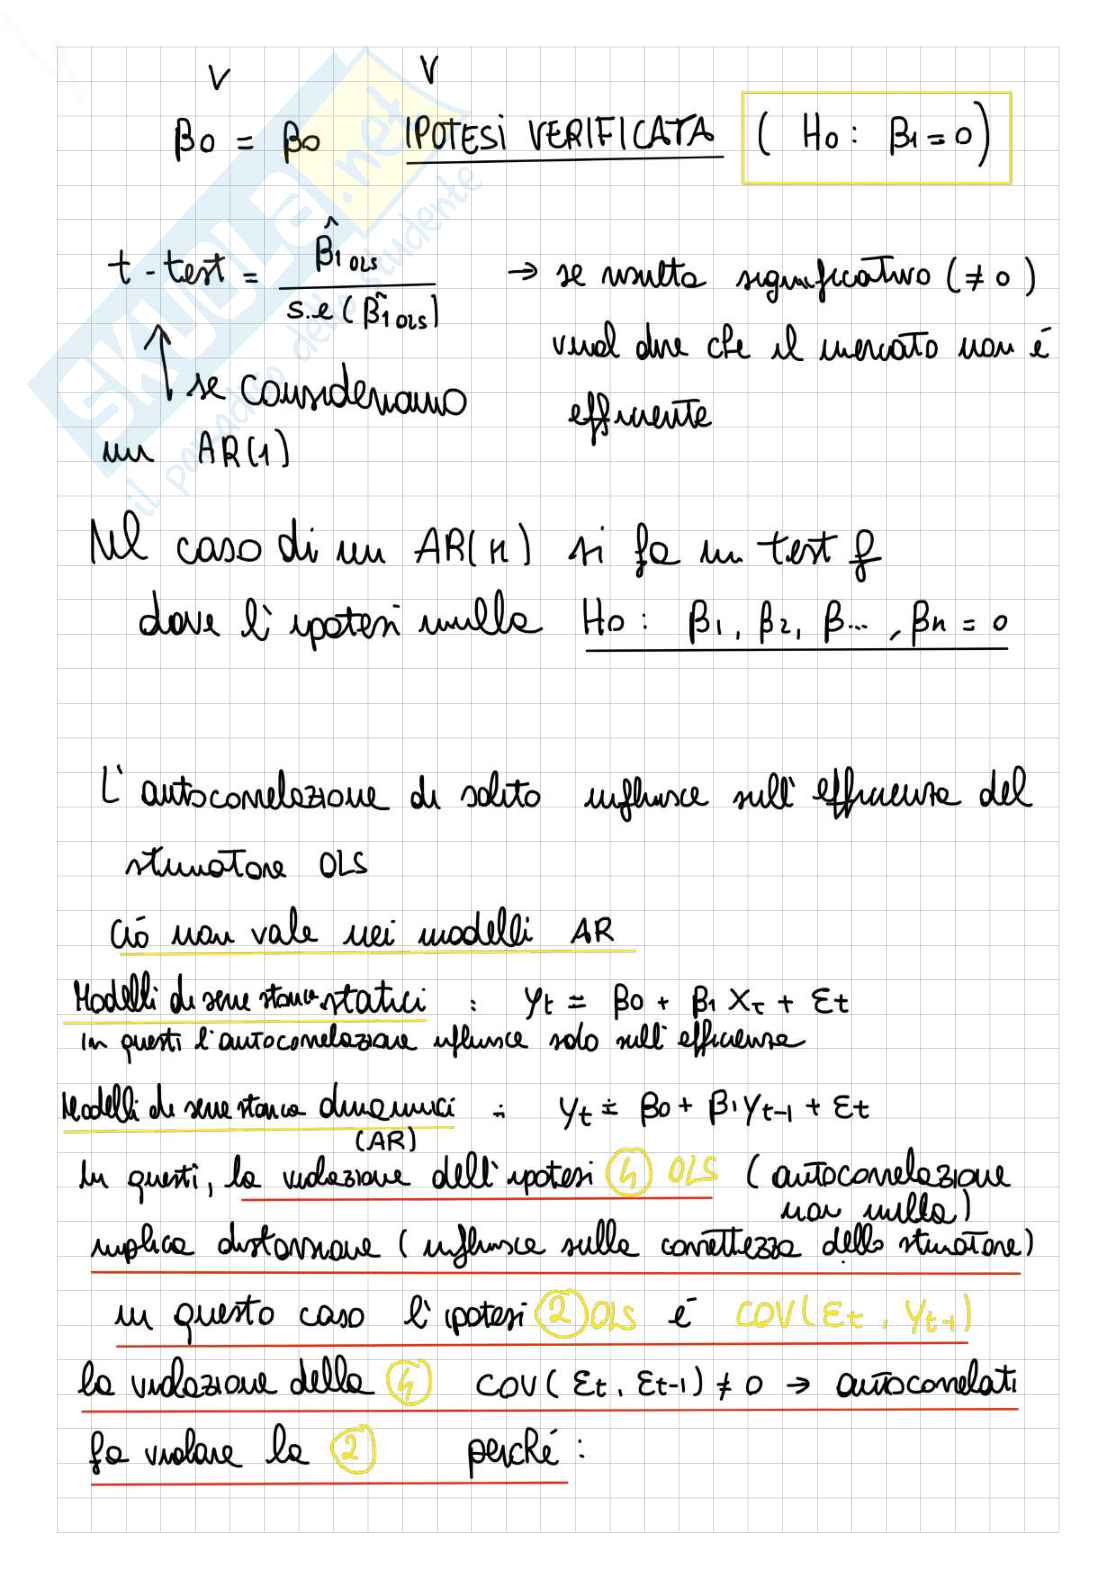 V V
β0 = β0 IPOTESI VERIFICATA ( H0 : β1 = 0 )
t - test = β̂1 OLS / s.e ( β̂1 OLS ) → se risulta significativo ( ≠ 0 )
vuol dire che il mercato non é
efficiente
↑ se consideriamo
un AR(1)
Nel caso di un AR(n) si fa un test f
dove l' ipotesi nulla H0 : β1, β2, β..., βn = 0
L' autocorrelazione di solito influisce sull' efficienza del
stimatore OLS
Ciò non vale nei modelli AR
Modelli di serie storica statici : yt = β0 + β1 Xt + Et
In questi l'autocorrelazione influisce solo sull' efficienza
Modelli di serie storica dinamici : yt = β0 + β1 yt-1 + Et
(AR)
In questi, la violazione dell' ipotesi 4 OLS ( autocorrelazione
non nulla )
implica distorsione ( influisce sulla correttezza dello stimatore )
in questo caso l' ipotesi 2 OLS é COV( Et , yt-1 )
la violazione della 4 COV ( Et , Et-1 ) ≠ 0 → autocorrelati
fa violare la 2 perché :
SKUOLA.net
il paradiso dello studente